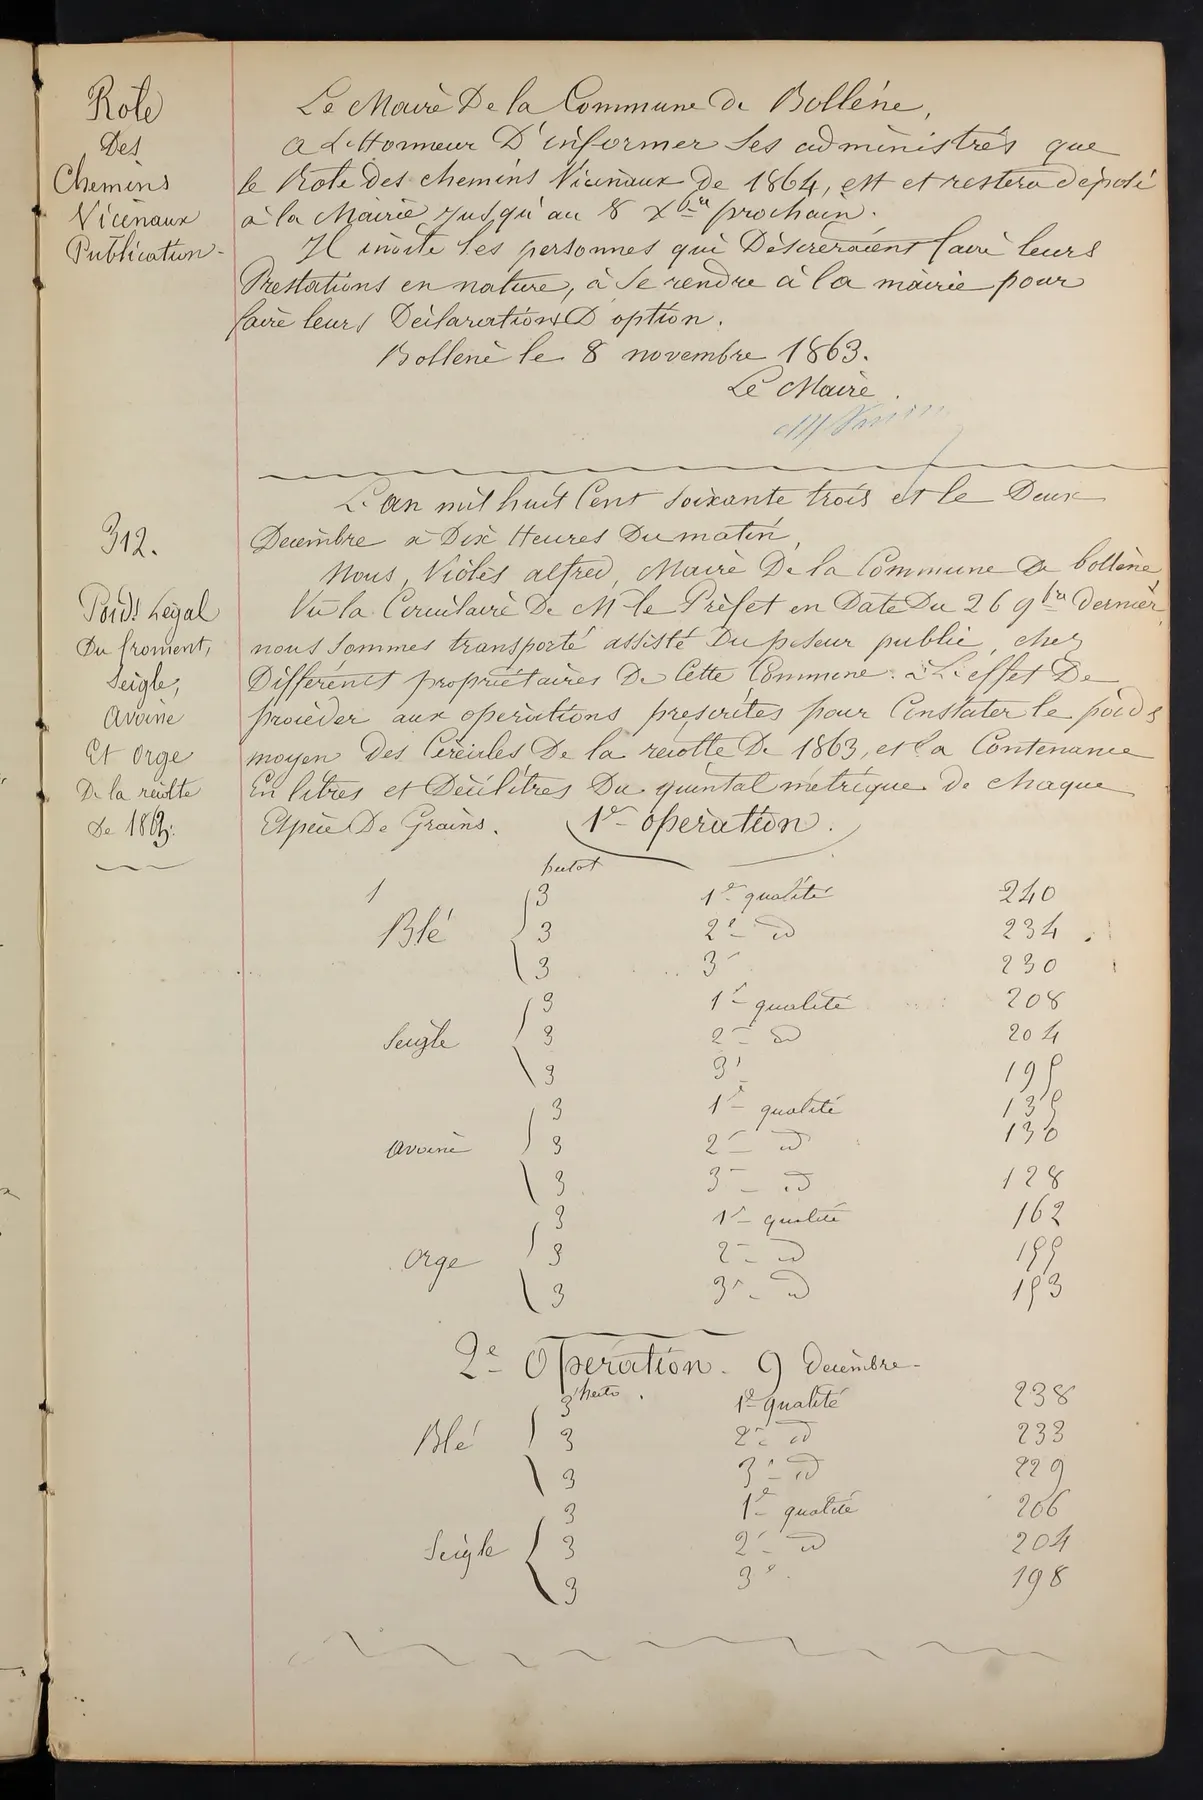 Role
Des
Chemins
Vicinaux
Publication -
Le Maire De la Commune de Bollène,
a L'Honneur D'informer ses administrés que
le Role Des chemins Vicinaux De 1864, est et restera déposé
à la Mairie jusqu'au 8 Xbre prochain.
Il invite les personnes qui Désireraient faire leurs
Prestations en nature, à se rendre à la mairie pour
faire leurs Déclarations D'option.
Bollene le 8 novembre 1863.
Le Maire.
312.
Poids Légal
Du froment,
Seigle,
Avoine
Et Orge
De la recolte
de 1863.
L'an mil huit Cent soixante trois et le Deux
Decembre à Dix Heures Du matin,
Nous, Violès alfred, Maire De la Commune De bollène
Vu la Circulaire De Mr le Préfet en Date Du 26 9bre dernier,
nous sommes transporté assisté Du peseur public, chez
Différents propriétaires De Cette Commune. à L'effet De
procéder aux operations prescrites pour Constater le poids
moyen Des Céréales De la recolte De 1863, et la Contenance
En litres et Décilitres Du quintal métrique de chaque
Espèce De Grains. 1re opération.
1 hectot
3 1re qualité 240
Blé 3 2e id 234
3 3e 230
3 1re qualité 208
Seigle 3 2e id 204
3 3e 195
3 1re qualité 135
avoine 3 2e id 130
3 3e id 128
3 1re qualité 162
Orge 3 2e id 155
3 3e id 153
2e Opération. 9 Decembre -
3 hecto. 1re qualité 238
Blé 3 2e id 233
3 3e id 229
3 1re qualité 206
Seigle 3 2e id 204
3 3e 198